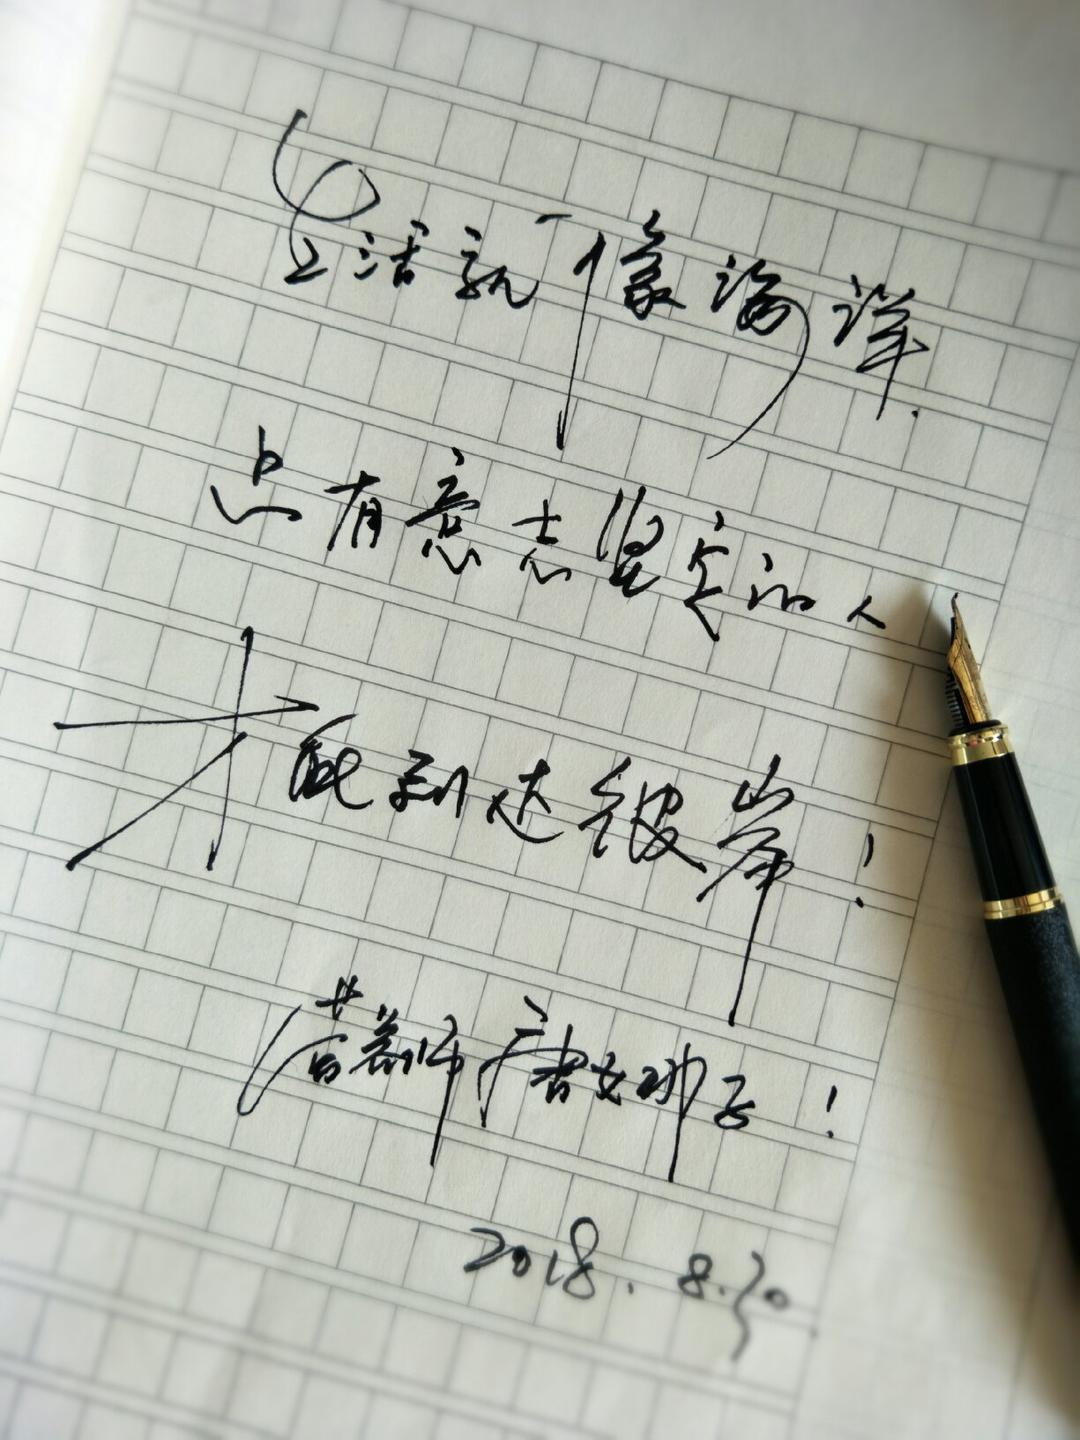 生活就像海洋.
只有意志坚定的人
才能到达彼岸!
唐
!
2018.8.30